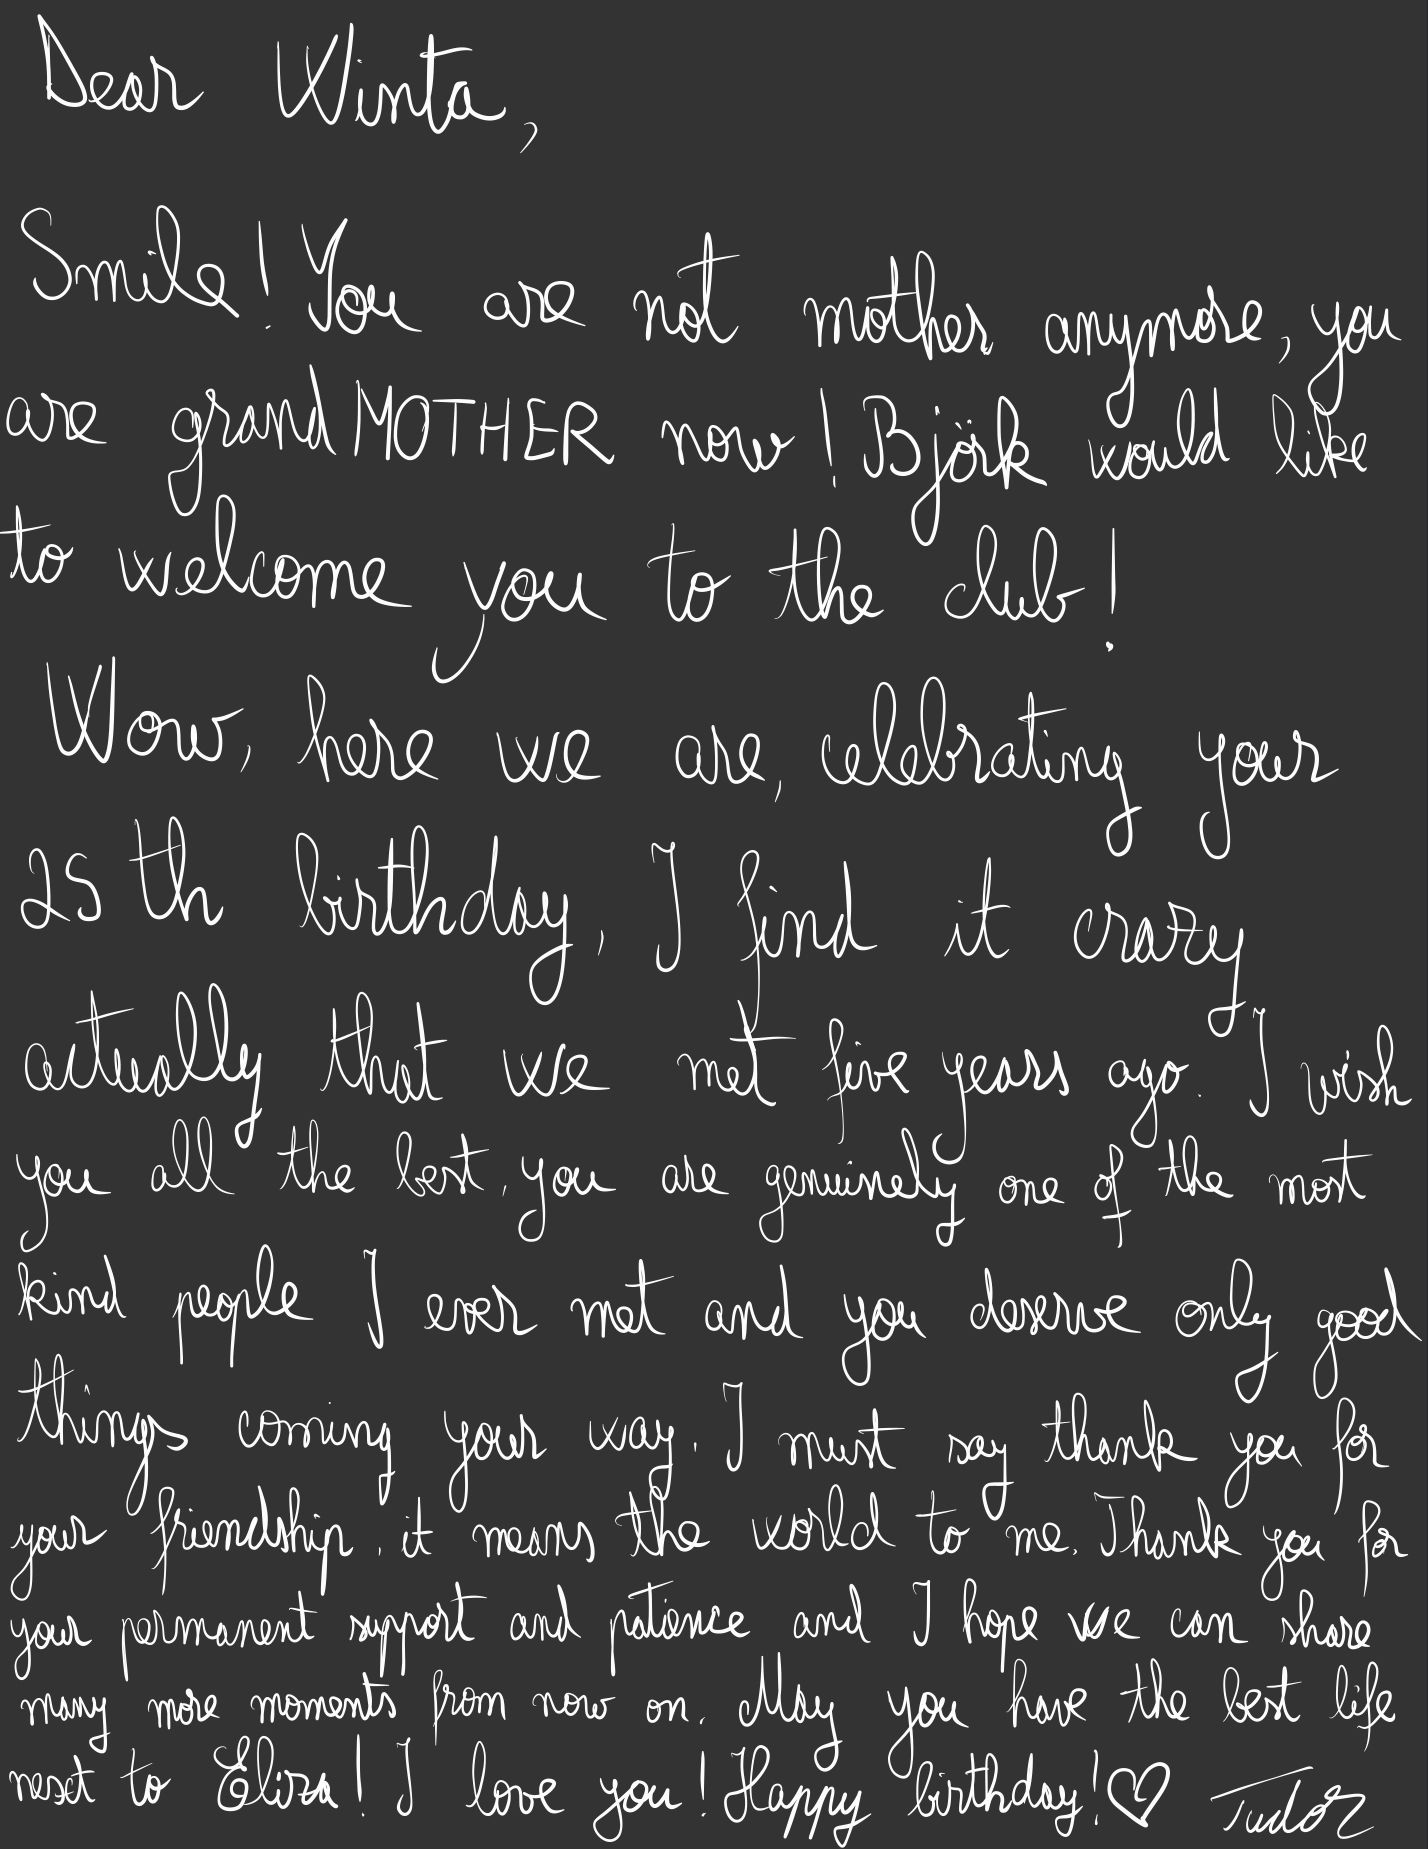 Dear Winta,
Smile! You are not mother anymore, you
are grandMOTHER now! Björk would like
to welcome you to the club!
Wow, here we are, celebrating your
25th birthday, I find it crazy
actually that we met five years ago. I wish
you all the best, you are genuinely one of the most
kind people I ever met and you deserve only good
things coming your way. I must say thank you for
your friendship, it means the world to me. Thank you for
your permanent support and patience and I hope we can share
many more moments from now on. May you have the best life
next to Eliza! I love you! Happy birthday!♡ Tudor